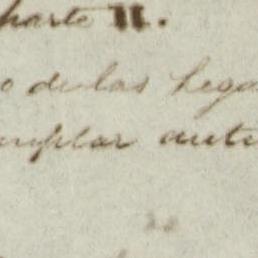 parte II.
o de las Lega
emplar aute